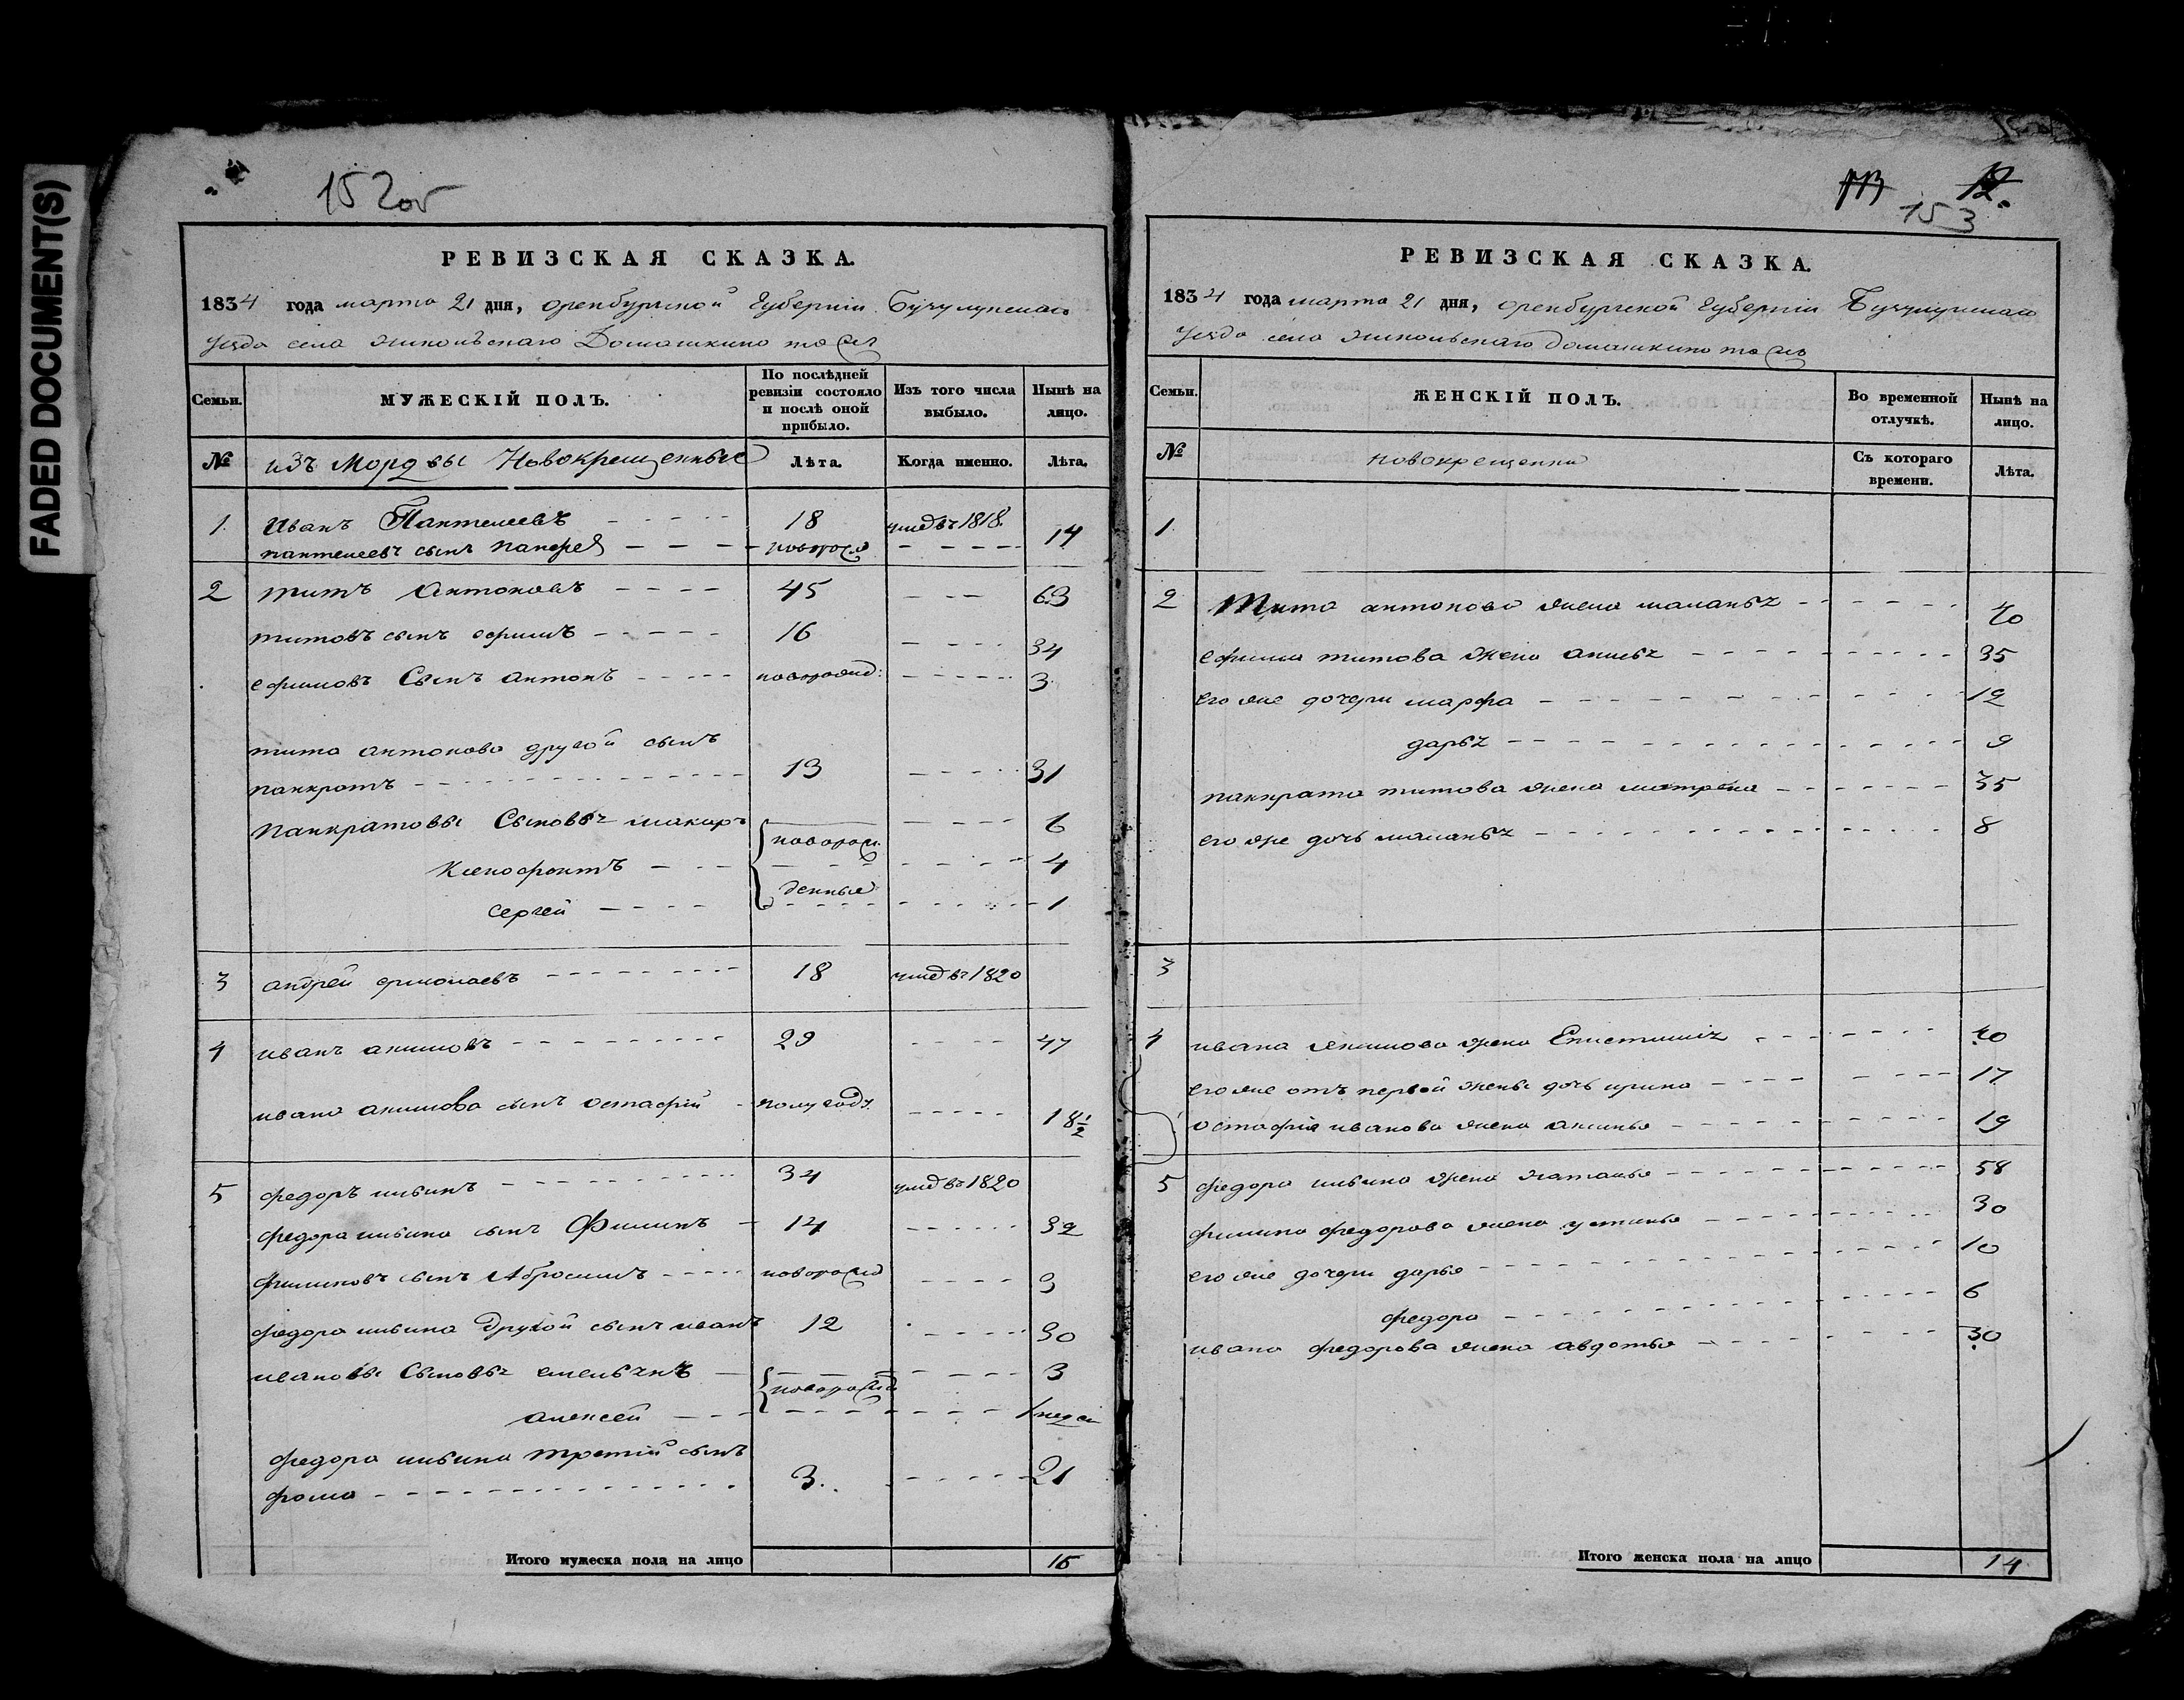 FADED DOCUMENT(S)
152об
РЕВИЗСКАЯ СКАЗКА.
1834 года марта 21 дня, оренбургской губерніи Бузулукскаго
уезда села никольскаго Домашкино то ж
Семьи.
МУЖЕСКІЙ ПОЛЪ.
По послѣдней ревизіи состояло и послѣ оной прибыло.
Изъ того числа выбыло.
Нынѣ на лицо.
№ изъ Мордвы Новокрещенные Лѣта. Когда именно. Лѣта.
1. Иванъ Пантелеевъ 18 умед въ 1818.
пантелеевъ сынъ 14
2 титъ Антоновъ 45 63
титовъ сынъ ефимъ 16 34
ефимовъ Сынъ антонъ новорожд: 3
тита антонова другой сынъ
панкратъ 13 31
панкратовы Сыновья макаръ новорож 6
Ксенофонтъ 4
денные
Сергей 1
3 андрей ермолаевъ 18 умед въ 1820
4 иванъ акимовъ 29 47
ивана акимова сынъ остафій полугоду. 18 1/2
5 федоръ 34 умед въ 1820
федора сынъ Филипъ 14 32
филиповъ сынъ Абросимъ новорожд 9
федора другой сынъ иванъ 12 30
ивановы Сыновья емельянъ новорожд 3
алексей 1 недели
федора третій сынъ
фома 3. 21
Итого мужеска пола на лицо 15
12.
153
РЕВИЗСКАЯ СКАЗКА.
1834 года марта 21 дня, оренбургской губерніи Бузулукскаго
уезда села никольскаго домашкино то ж
Семьи.
ЖЕНСКІЙ ПОЛЪ.
Во временной отлучкѣ.
Нынѣ на лицо.
№ новокрещенки Съ котораго времени. Лѣта.
1.
2 Тита антонова жена маланья 70
ефима титова жена 35
его же дочери марфа 12
дарья 9
панкрата титова жена матрена 35
его же дочь маланья 8
3
4 ивана акимова жена Епистимія 40
его же отъ первой жены дочь ирина 17
остафія иванова жена аксинья 19
5 федора жена наталья 58
филипа федорова жена устинья 30
его же дочери дарья 10
федора 6
ивана федорова жена авдотья 30
Итого женска пола на лицо 14